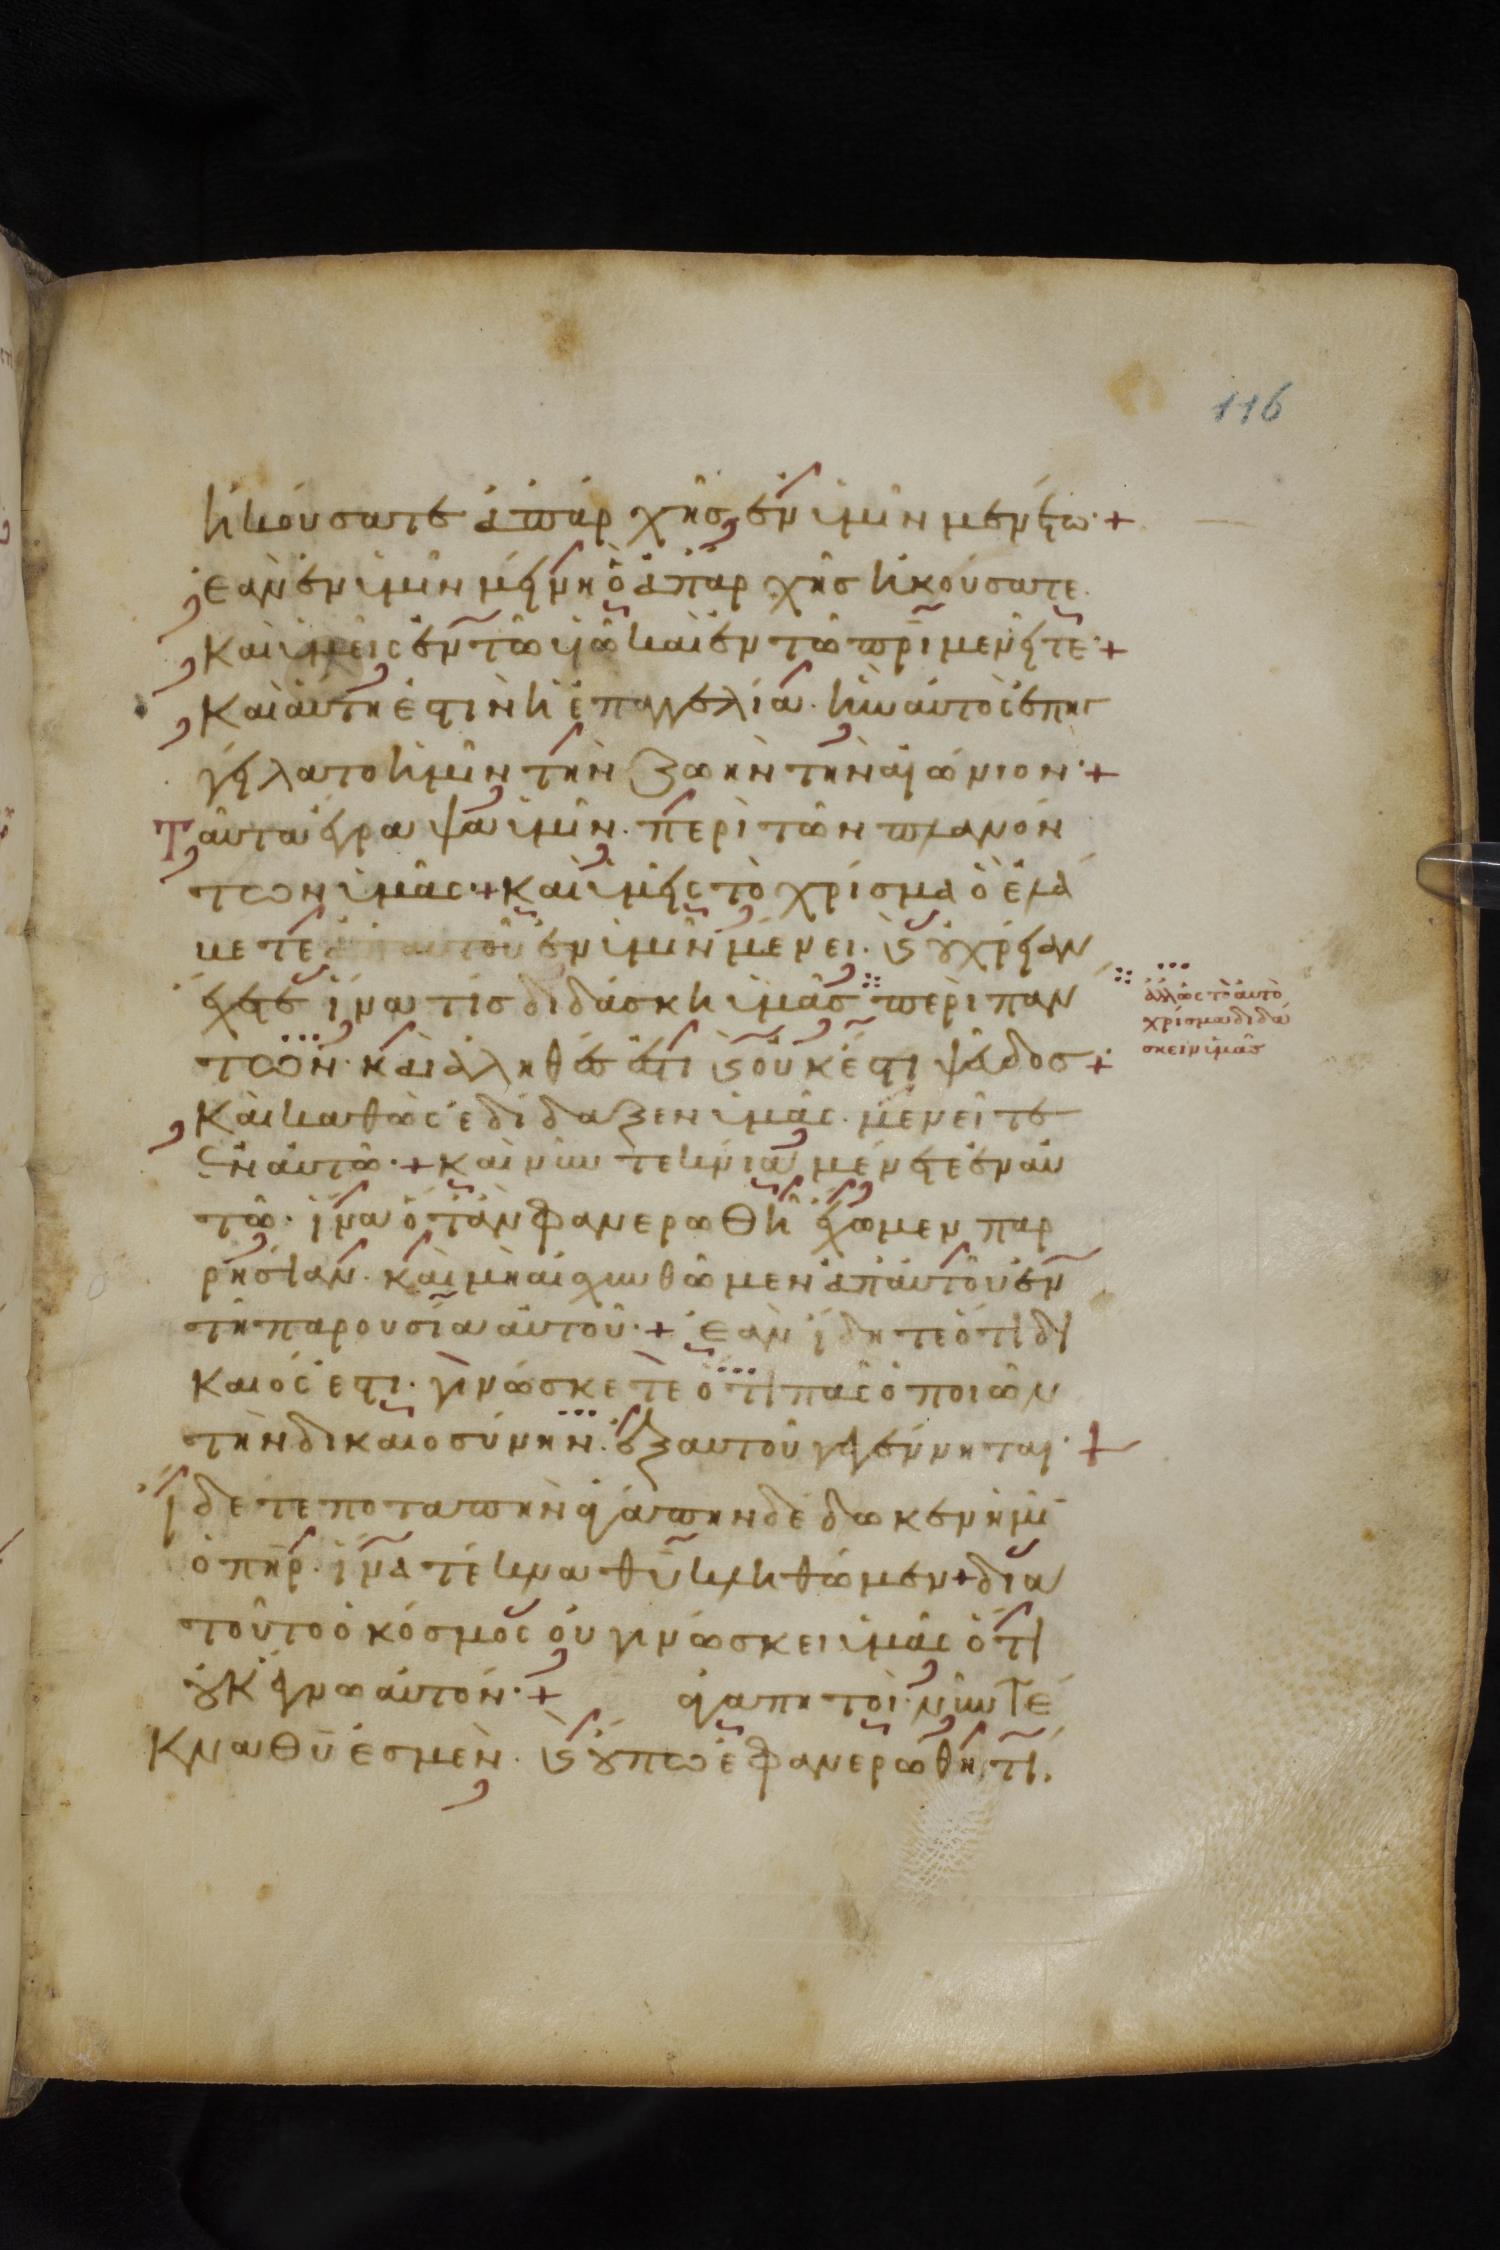 116
ἠκούσατε ἀπάρχῆσ ἐν ὑμῖν μενέτω· +
ἐὰν ἐν ὑμῖν μείνη ὃ ἀπαρχῆσ ἠκούσατε
Καὶ ὑμεῖς ἐν τῶ υἱῶ καὶ ἐν τῶ πρ̅ι μενεῖτε· +
Καὶ ἀύτη ἐστὶν ἡ ἐπαγγελία· ἣν ἀυτὸς ἐπηγ
γείλατο ἡμῖν τὴν ζωὴν τὴν αἰώνιον· +
Ταῦτα ἔγραψα ὑμῖν· περὶ τῶν πλανόν
των ὑμᾶς· + Καὶ ὑμεῖς τὸ χρίσμα ὃ ἐλά
βετε ἀπ αυτοῦ ἐν ὑμῖν μένει· κ ου χρείαν
ἔχετε ἵνα τὶσ διδάσκη ὑμᾶσ περὶ πάν
των· καὶ ἀληθέσ ἐστι κ οὐκ ἔστι ψεῦδοσ +
ἀλλ ὡς τὸ ἀυτὸ
χρίσμα διδά
σκει ὑμᾶσ
Καὶ καθὼς ἐδίδαξεν ὑμᾶς· μενεῖτε
Ἐν ἀυτῶ· + Καὶ νῦν τεκνία μένετε ἐν ἀυ
τῶ· ἵνα ὁτὰν φανερωθῆ ἔχωμεν παρ
ρησίαν· καὶ μὴ αἰσχυνθῶμεν ἀπ ἀυτοῦ ἐν
τῆ παρουσία ἀυτοῦ· + Ἐὰν ἴδητε ὅτι δί
καιός ἐστι· γινώσκετε ὅτι πᾶς ὁ ποιῶν
τὴν δικαιοσύνην· ἐξ αυτοῦ γεγέννηται· +
ἴδετε ποταπὴν ἀγάπην δέδωκεν ἡμῖ
ὁ πη̅ρ· ἵνα τέκνα θυ̅ κληθῶμεν + δια
τοῦτο ὁ κόσμος ὀυ γινώσκει ὑμᾶς ὅτι
οὐκ ἔγνω ἀυτόν· + ἀγαπητοὶ· νῦν τέ
κνα θυ̅ ἐσμὲν· κ ὄυπω ἐφανερώθη τί